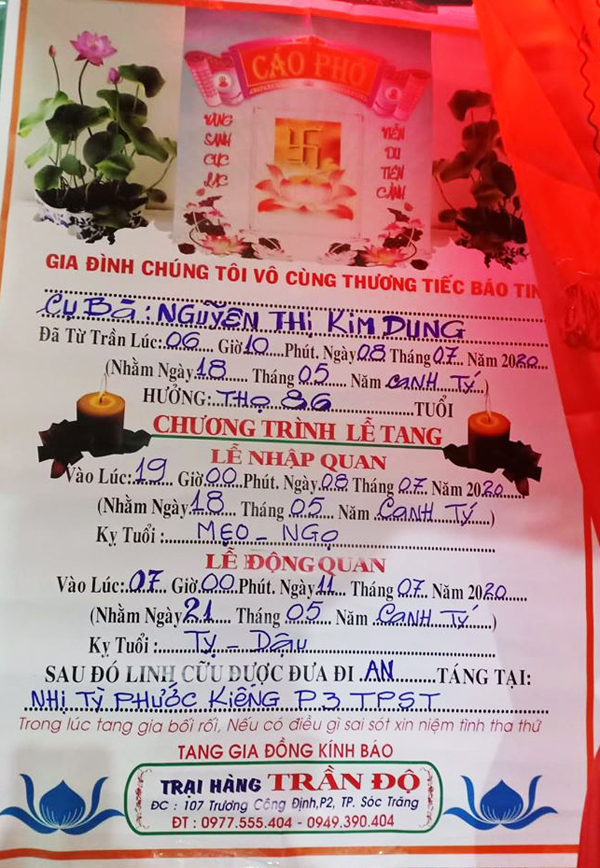 CÁO PHÓ
VÃNG SANH CỰC LẠC
VIỄN DU TIÊN CẢNH
GIA ĐÌNH CHÚNG TÔI VÔ CÙNG THƯƠNG TIẾC BÁO TIN
CỤ BÀ: NGUYỄN THỊ KIM DUNG
Đã Từ Trần Lúc: 06 Giờ 10 Phút. Ngày 08 Tháng 07. Năm 2020
(Nhằm Ngày 18 Tháng 05 Năm CANH TÝ)
HƯỞNG: THỌ 86 TUỔI
CHƯƠNG TRÌNH LỄ TANG
LỄ NHẬP QUAN
Vào Lúc: 19 Giờ 00 Phút. Ngày 08 Tháng 07. Năm 2020
(Nhằm Ngày 18 Tháng 05 Năm CANH TÝ)
Kỵ Tuổi: MẸO - NGỌ
LỄ ĐỘNG QUAN
Vào Lúc: 07 Giờ 00 Phút. Ngày 11 Tháng 07. Năm 2020
(Nhằm Ngày 21 Tháng 05 Năm CANH TÝ)
Kỵ Tuổi: TỴ - DẬU
SAU ĐÓ LINH CỮU ĐƯỢC ĐƯA ĐI AN TÁNG TẠI:
NHỊ TỲ PHƯỚC KIẾNG P3 TPST
Trong lúc tang gia bối rối, Nếu có điều gì sai sót xin niệm tình tha thứ
TANG GIA ĐỒNG KÍNH BÁO
TRẠI HÀNG TRẦN ĐỘ
ĐC : 107 Trương Công Định, P2, TP. Sóc Trăng
ĐT : 0977.555.404 - 0949.390.404